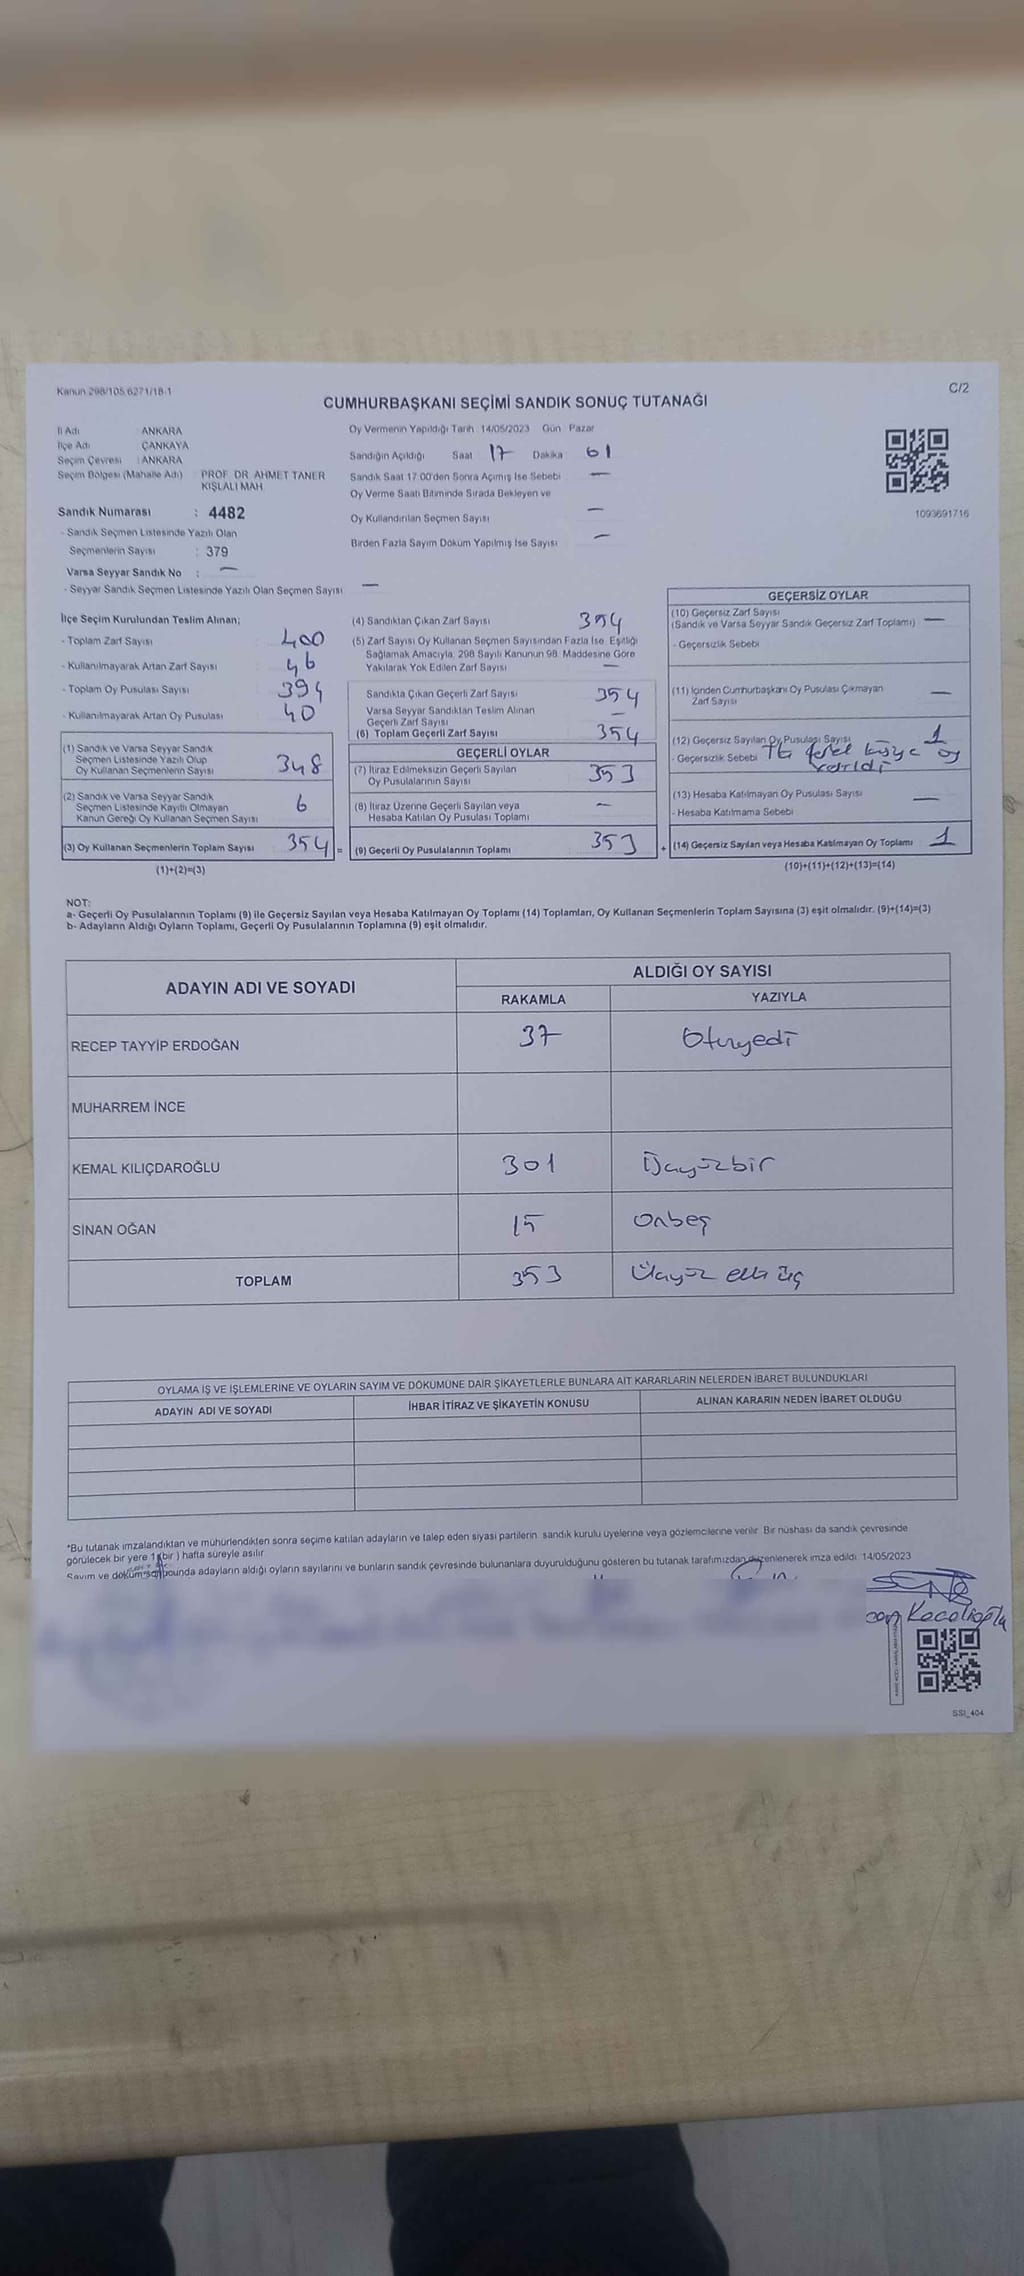 Kanun 298/105,6271/18-1
C/2
CUMHURBAŞKANI SEÇİMİ SANDIK SONUÇ TUTANAĞI
İl Adı ANKARA
İlçe Adı ÇANKAYA
Seçim Çevresi : ANKARA
Seçim Bölgesi (Mahalle Adı) : PROF. DR. AHMET TANER
KIŞLALI MAH.
Sandık Numarası : 4482
- Sandık Seçmen Listesinde Yazılı Olan
Seçmenlerin Sayısı : 379
Varsa Seyyar Sandık No : —
- Seyyar Sandık Seçmen Listesinde Yazılı Olan Seçmen Sayısı —
Oy Vermenin Yapıldığı Tarih 14/05/2023 Gün Pazar
Sandığın Açıldığı Saat 17 Dakika 01
Sandık Saat 17.00'den Sonra Açımış İse Sebebi —
Oy Verme Saati Bitiminde Sırada Bekleyen ve
Oy Kullandırılan Seçmen Sayısı —
Birden Fazla Sayım Döküm Yapılmış İse Sayısı —
1093691716
İlçe Seçim Kurulundan Teslim Alınan;
- Toplam Zarf Sayısı 400
- Kullanılmayarak Artan Zarf Sayısı 46
- Toplam Oy Pusulası Sayısı 394
- Kullanılmayarak Artan Oy Pusulası 40
(1) Sandık ve Varsa Seyyar Sandık
Seçmen Listesinde Yazılı Olup
Oy Kullanan Seçmenlerin Sayısı 348
(2) Sandık ve Varsa Seyyar Sandık
Seçmen Listesinde Kayıtlı Olmayan
Kanun Gereği Oy Kullanan Seçmen Sayısı 6
(3) Oy Kullanan Seçmenlerin Toplam Sayısı 354 =
(1)+(2)=(3)
(4) Sandıktan Çıkan Zarf Sayısı 354
(5) Zarf Sayısı Oy Kullanan Seçmen Sayısından Fazla İse, Eşitliği
Sağlamak Amacıyla; 298 Sayılı Kanunun 98. Maddesine Göre
Yakılarak Yok Edilen Zarf Sayısı —
Sandıkta Çıkan Geçerli Zarf Sayısı 354
Varsa Seyyar Sandıktan Teslim Alınan
Geçerli Zarf Sayısı —
(6) Toplam Geçerli Zarf Sayısı 354
GEÇERLİ OYLAR
(7) İtiraz Edilmeksizin Geçerli Sayılan
Oy Pusulalarının Sayısı 353
(8) İtiraz Üzerine Geçerli Sayılan veya
Hesaba Katılan Oy Pusulası Toplamı —
(9) Geçerli Oy Pusulalarının Toplamı 353 +
GEÇERSİZ OYLAR
(10) Geçersiz Zarf Sayısı
(Sandık ve Varsa Seyyar Sandık Geçersiz Zarf Toplamı) —
- Geçersizlik Sebebi
(11) İçinden Cumhurbaşkanı Oy Pusulası Çıkmayan
Zarf Sayısı —
(12) Geçersiz Sayılan Oy Pusulası Sayısı 1
- Geçersizlik Sebebi kişiye oy
verildi
(13) Hesaba Katılmayan Oy Pusulası Sayısı —
- Hesaba Katılmama Sebebi
(14) Geçersiz Sayılan veya Hesaba Katılmayan Oy Toplamı 1
(10)+(11)+(12)+(13)=(14)
NOT:
a- Geçerli Oy Pusulalarının Toplamı (9) ile Geçersiz Sayılan veya Hesaba Katılmayan Oy Toplamı (14) Toplamları, Oy Kullanan Seçmenlerin Toplam Sayısına (3) eşit olmalıdır. (9)+(14)=(3)
b- Adayların Aldığı Oyların Toplamı, Geçerli Oy Pusulalarının Toplamına (9) eşit olmalıdır.
ADAYIN ADI VE SOYADI
ALDIĞI OY SAYISI
RAKAMLA YAZIYLA
RECEP TAYYİP ERDOĞAN 37 Otuzyedi
MUHARREM İNCE
KEMAL KILIÇDAROĞLU 301 Üçyüzbir
SİNAN OĞAN 15 Onbeş
TOPLAM 353 Üçyüz elli üç
OYLAMA İŞ VE İŞLEMLERİNE VE OYLARIN SAYIM VE DÖKÜMÜNE DAİR ŞİKAYETLERLE BUNLARA AİT KARARLARIN NELERDEN İBARET BULUNDUKLARI
ADAYIN ADI VE SOYADI İHBAR İTİRAZ VE ŞİKAYETİN KONUSU ALINAN KARARIN NEDEN İBARET OLDUĞU
*Bu tutanak imzalandıktan ve mühürlendikten sonra seçime katılan adayların ve talep eden siyasi partilerin sandık kurulu üyelerine veya gözlemcilerine verilir. Bir nüshası da sandık çevresinde
görülecek bir yere 1 ( bir ) hafta süreyle asılır.
Sayım ve döküm sonucunda adayların aldığı oyların sayılarını ve bunların sandık çevresinde bulunanlara duyurulduğunu gösteren bu tutanak tarafımızdan düzenlenerek imza edildi. 14/05/2023
Kocalioğlu
SSİ_404